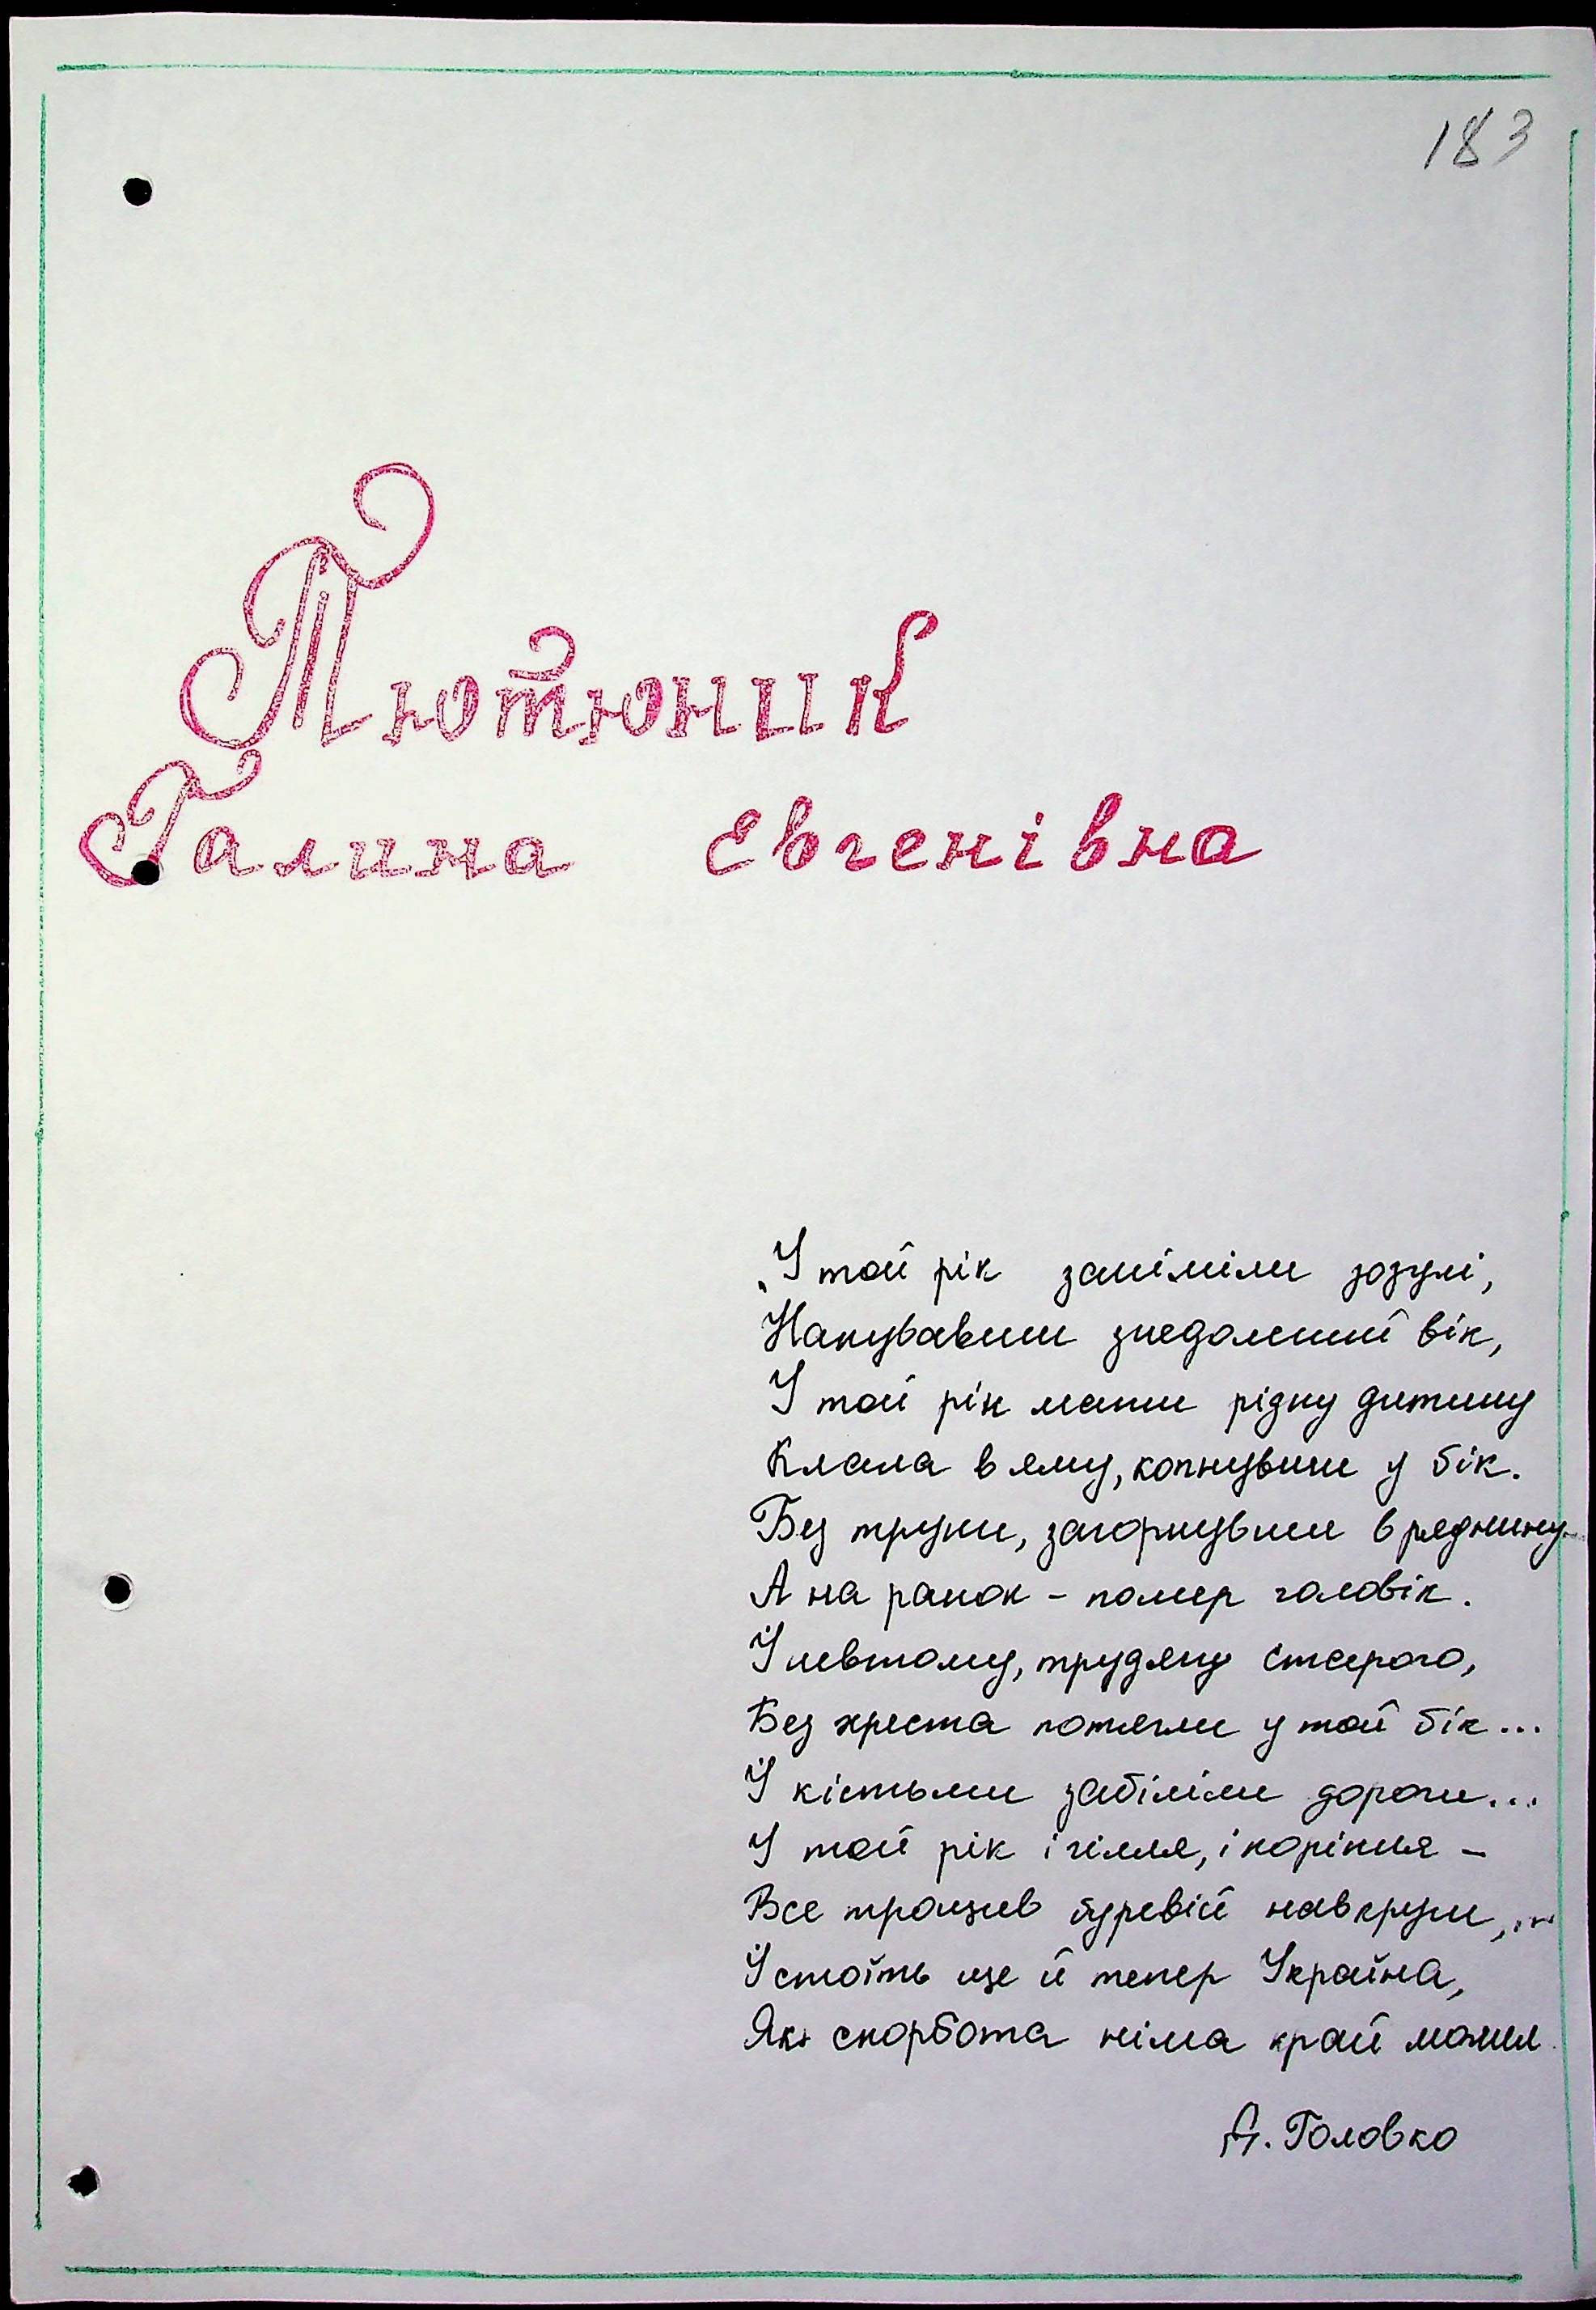 183
Тютюник
Галина Євгенівна
„У той рік заніміли зозулі,
Накувавши знедолений вік,
У той рік мати рідну дитину
Клала в яму, копнувши у бік.
Без труни, загорнувши в ряднину
А на ранок – помер чоловік.
І невтому, трудягу старого,
Без хреста потягли у той бік...
І кістьми забіліли дороги...
У той рік і гілля, і коріння –
Все трощив буревій навкруги,...
І стоїть ще й тепер Україна,
Як скорбота німа край могил
А. Головко